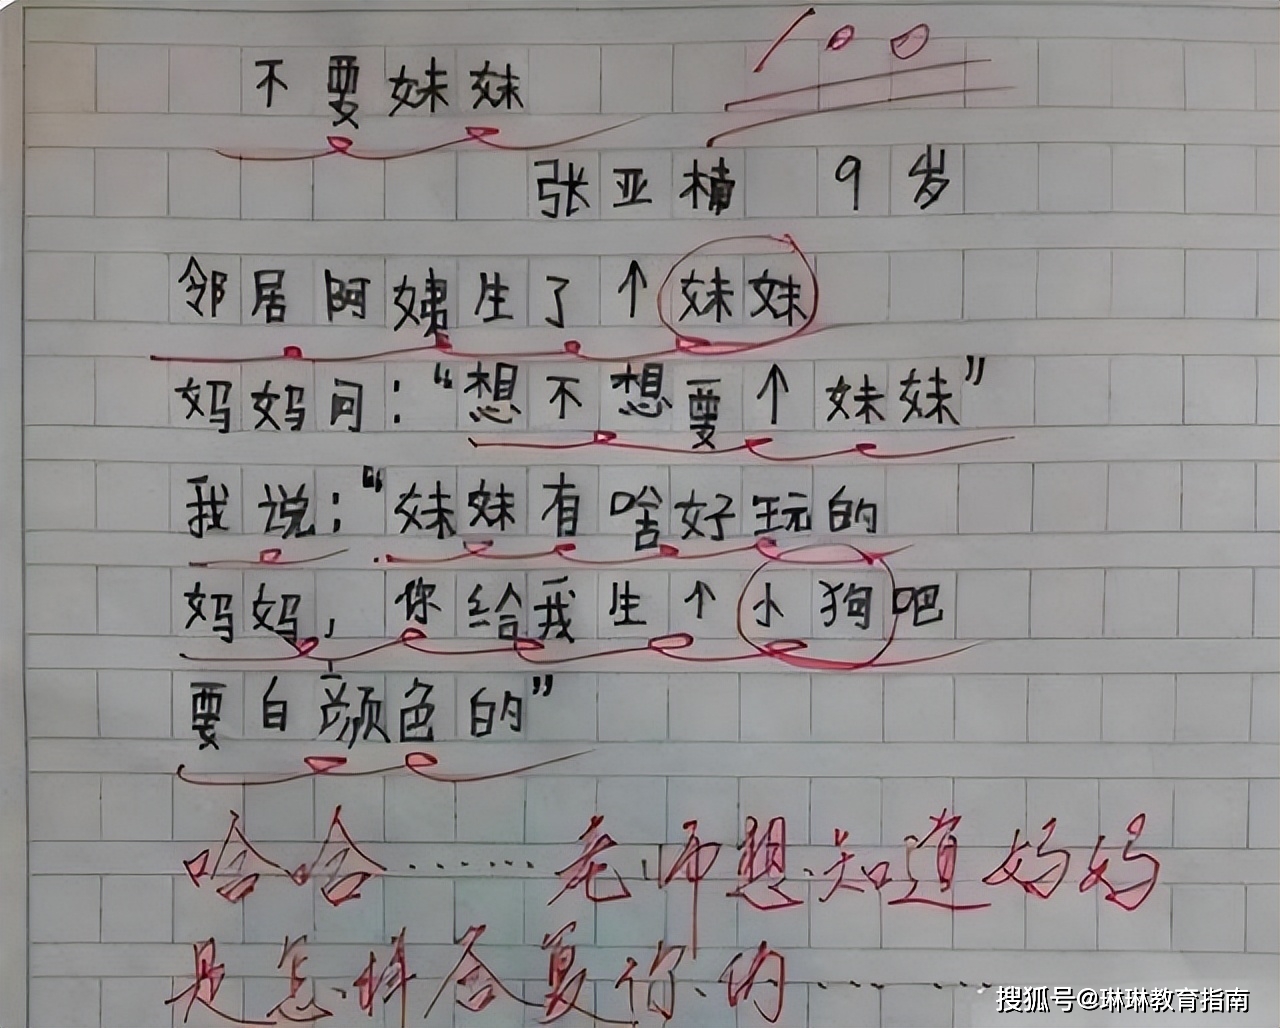 100
不要妹妹
张亚楠 9岁
邻居阿姨生了个妹妹
妈妈问:“想不想要个妹妹”
我说:“妹妹有啥好玩的
妈妈,你给我生个小狗吧
要白颜色的”
哈哈……老师想知道妈妈
是怎样答复你的……
搜狐号@琳琳教育指南